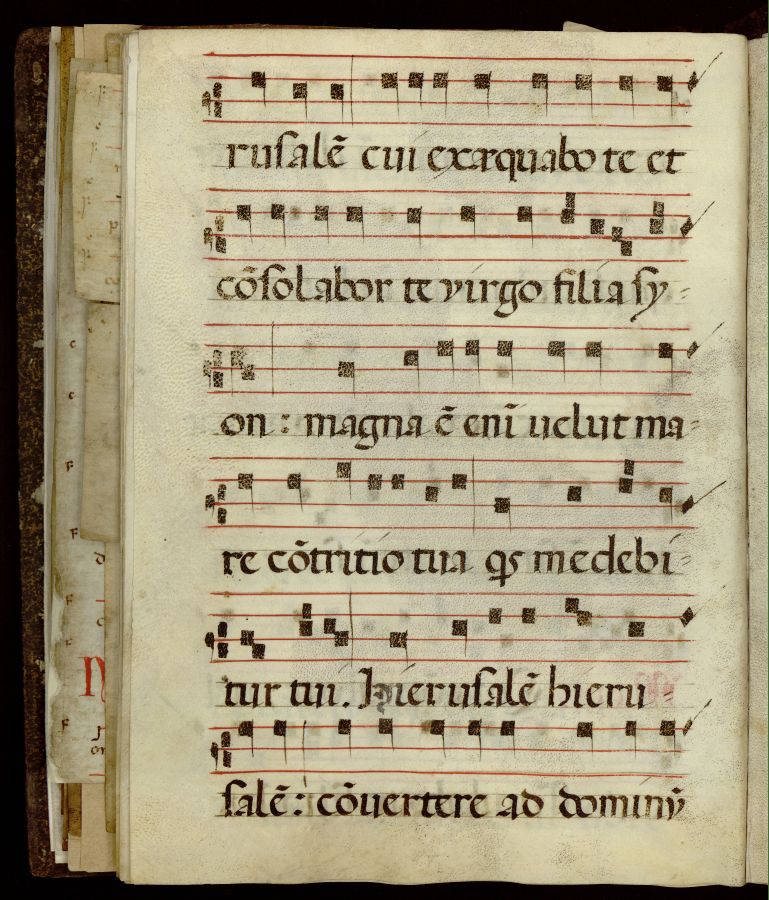 rusalē cui exæquabo te et
cōsolabor te virgo filia sy-
on : magna ē enī uelut ma-
re cōtritio tua qs medebi-
tur tui. Hierusalē hieru-
salē : cōuertere ad dominū